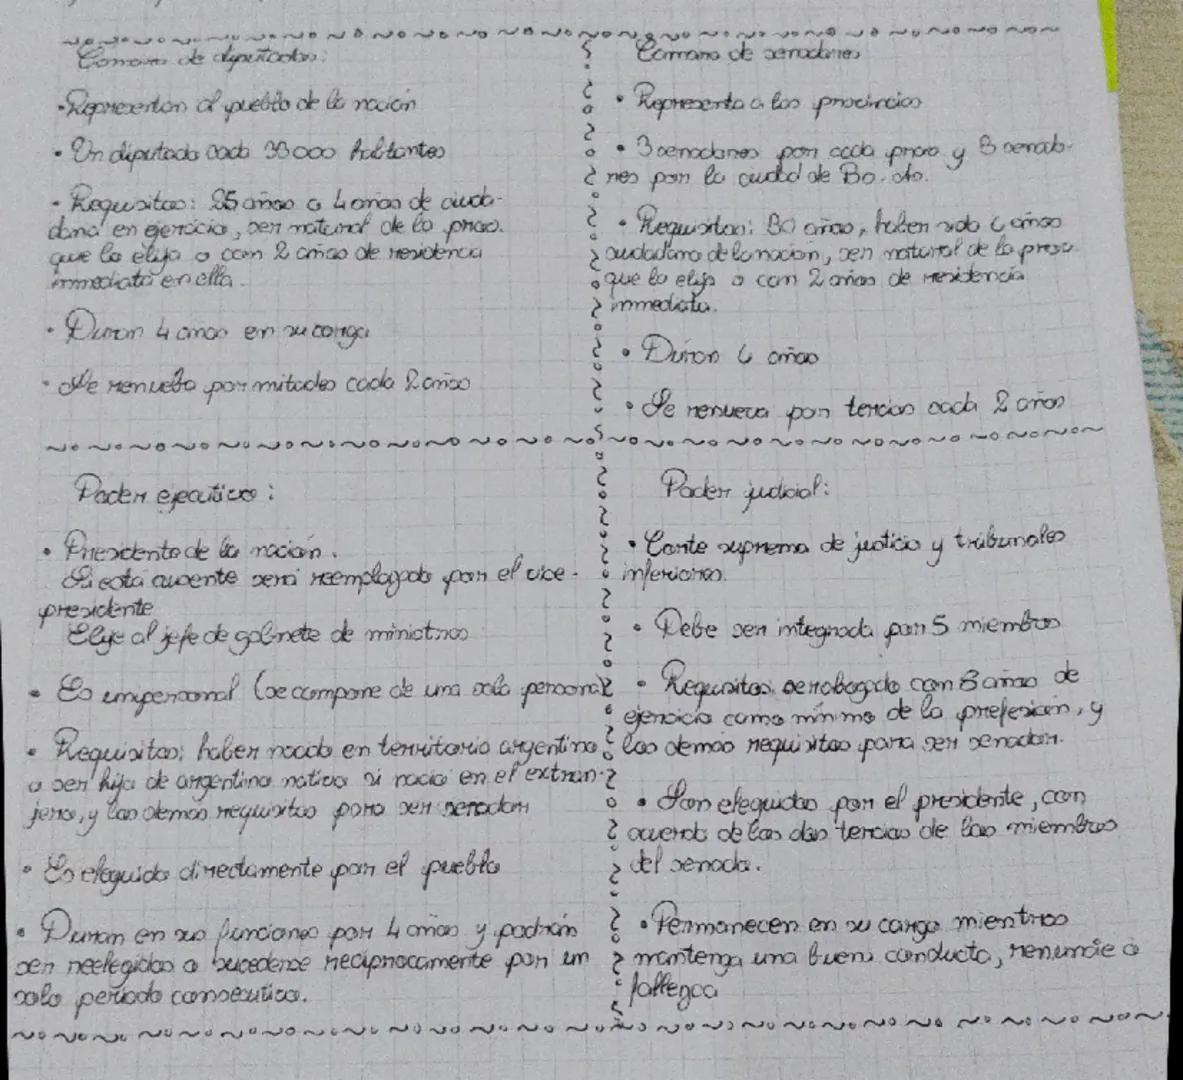 Cámara de diputados:
• Representan al pueblo de la nación
• Un diputado cada 33000 habitantes
• Requisitos: 25 años o 4 años de ciuda-
dano en ejercicio, ser natural de la prov.
que lo elija o con 2 años de residencia
inmediata en ella.
• Duran 4 años en su cargo
• Se renueva por mitades cada 2 años
Cámara de senadores
• Representa a las provincias
• 3 senadores por cada prov y 3 senado-
res por la ciudad de Bs. As.
• Requisitos: 30 años, haber sido 6 años
ciudadano de la nación, ser natural de la prov.
que lo elija o con 2 años de residencia
inmediata.
• Duran 6 años
• Se renueva por tercios cada 2 años
Poder ejecutivo:
• Presidente de la nación.
Si está ausente será reemplazado por el vice-
presidente
Elije al jefe de gabinete de ministros
• Es unipersonal (se compone de una sola persona)
• Requisitos: haber nacido en territorio argentino
o ser hijo de argentino nativo si nació en el extran-
jero, y los demás requisitos para ser senador
• Es eleguido directamente por el pueblo
• Duran en sus funciones por 4 años y podrán
ser reelegidos o sucederse recíprocamente por un
solo período consecutivo.
Poder judicial:
• Corte suprema de justicia y tribunales
inferiores.
• Debe ser integrada por 5 miembros
• Requisitos: ser abogado con 8 años de
ejercicio como mínimo de la profesión, y
los demás requisitos para ser senador.
• Son eleguidos por el presidente, con
acuerdo de los dos tercios de los miembros
del senado.
• Permanecen en su cargo mientras
mantenga una buena conducta, renuncie o
fallezca